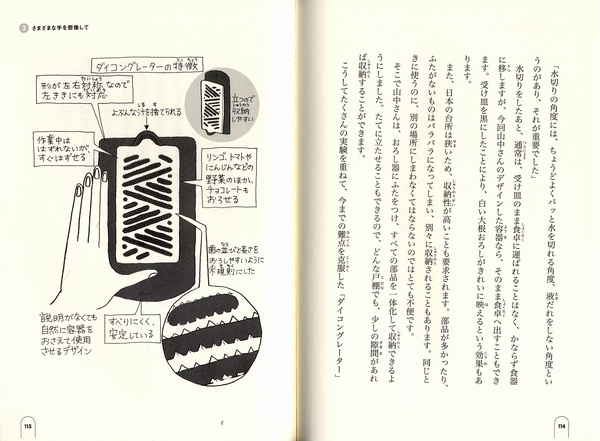 「水切りの角度には、ちょうどよくパッと水を切れる角度、液だれをしない角度とい
うのがあり、それが重要でした」
水切りをしたあと、通常は、受け皿のまま食卓に運ばれることはなく、かならず食器
に移しますが、今回山中さんのデザインした容器なら、そのまま食卓へ出すこともでき
ます。受け皿を黒にしたことにより、白い大根おろしがきれいに映えるという効果もあ
ります。
また、日本の台所は狭いため、収納性が高いことも要求されます。部品が多かったり、
ふたがないものはバラバラになってしまい、別々に収納されることもあります。同じと
きに使うのに、別の場所にしまわなくてはならないのではとても不便です。
そこで山中さんは、おろし器にふたをつけ、すべての部品を一体化して収納できるよ
うにしました。たてに立たせることもできるので、どんな戸棚でも、少しの隙間があれ
ば収納することができます。
こうしてたくさんの実験を重ねて、今までの難点を克服した「ダイコングレーター」
114
3 さまざまな手を想像して
ダイコングレーターの特徴
形が左右対称なので
左ききにも対応
よぶんな汁を捨てられる
立つので
収納
しやすい
作業中は
はずれないが
すぐはずせる
リンゴ、トマトや
にんじんなどの
野菜のほか、
チョコレートも
おろせる
歯の並びと長さを
おろしやすいように
不規則にした
すべりにくく、
安定している
説明がなくても
自然に容器を
おさえて使用
させるデザイン
115